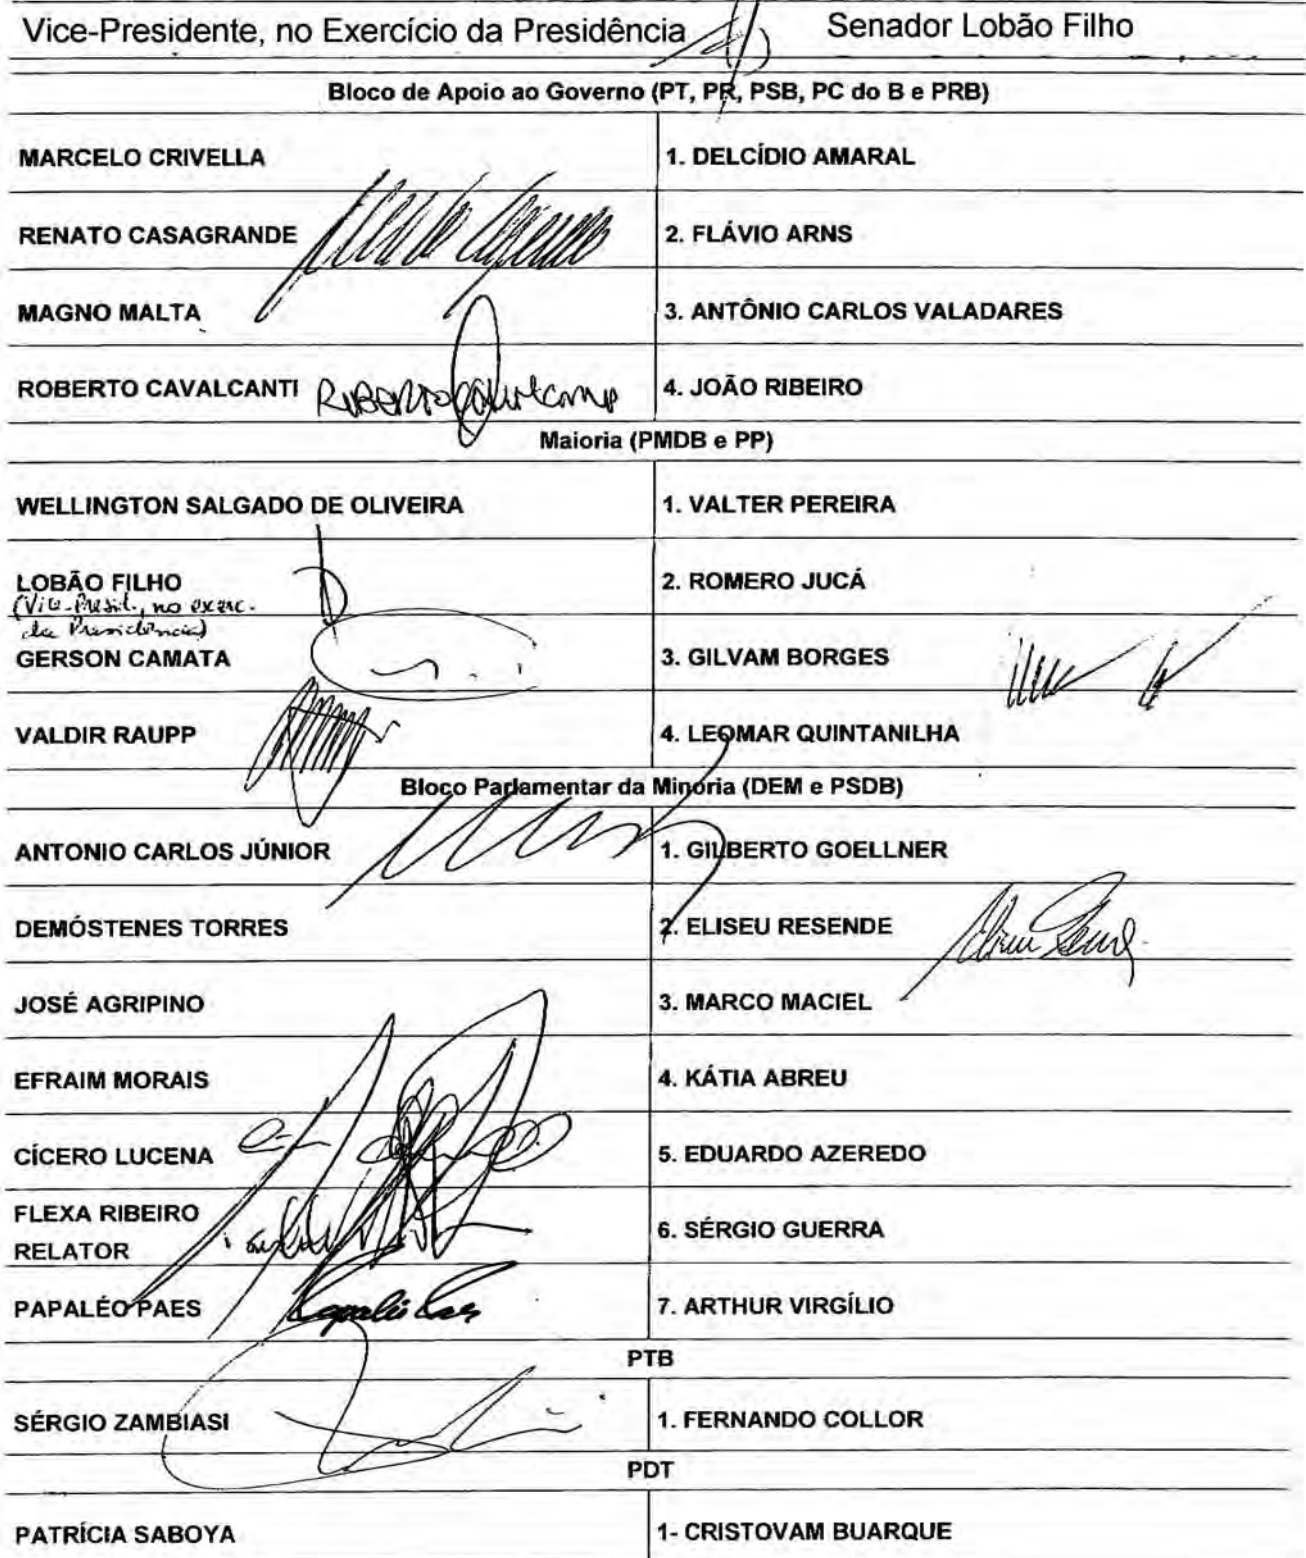 Vice-Presidente, no Exercício da Presidência Senador Lobão Filho
Bloco de Apoio ao Governo (PT, PR, PSB, PC do B e PRB)
MARCELO CRIVELLA 1. DELCÍDIO AMARAL
RENATO CASAGRANDE 2. FLÁVIO ARNS
MAGNO MALTA 3. ANTÔNIO CARLOS VALADARES
ROBERTO CAVALCANTI 4. JOÃO RIBEIRO
Maioria (PMDB e PP)
WELLINGTON SALGADO DE OLIVEIRA 1. VALTER PEREIRA
LOBÃO FILHO 2. ROMERO JUCÁ
(Vice-Presid., no exerc.
da Presidência)
GERSON CAMATA 3. GILVAM BORGES
VALDIR RAUPP 4. LEOMAR QUINTANILHA
Bloco Parlamentar da Minoria (DEM e PSDB)
ANTONIO CARLOS JÚNIOR 1. GILBERTO GOELLNER
DEMÓSTENES TORRES 2. ELISEU RESENDE
JOSÉ AGRIPINO 3. MARCO MACIEL
EFRAIM MORAIS 4. KÁTIA ABREU
CÍCERO LUCENA 5. EDUARDO AZEREDO
FLEXA RIBEIRO
RELATOR 6. SÉRGIO GUERRA
PAPALÉO PAES 7. ARTHUR VIRGÍLIO
PTB
SÉRGIO ZAMBIASI 1. FERNANDO COLLOR
PDT
PATRÍCIA SABOYA 1- CRISTOVAM BUARQUE